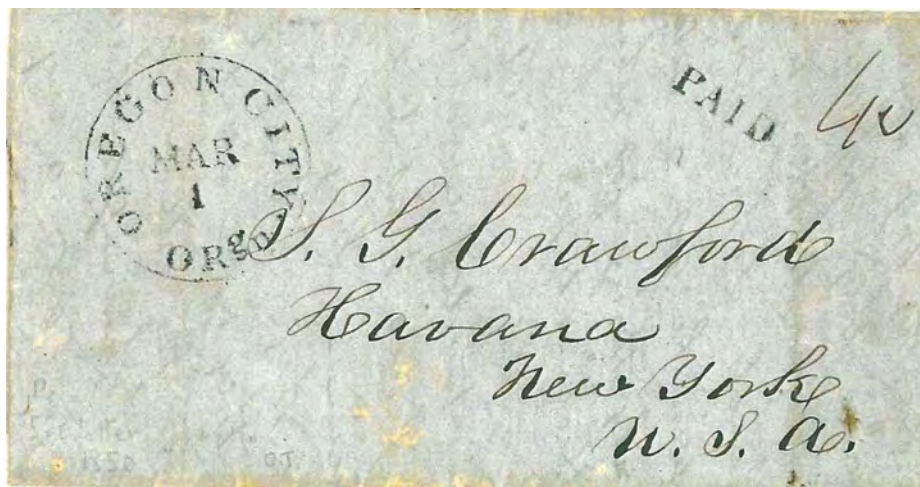 OREGON CITY
MAR
1
ORGn
PAID
40
S. G. Crawford
Havana
New York
U. S. A.